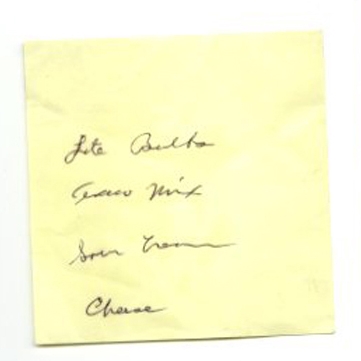 Lite Bulbs
Taco Mix
Sour Cream
Cheese